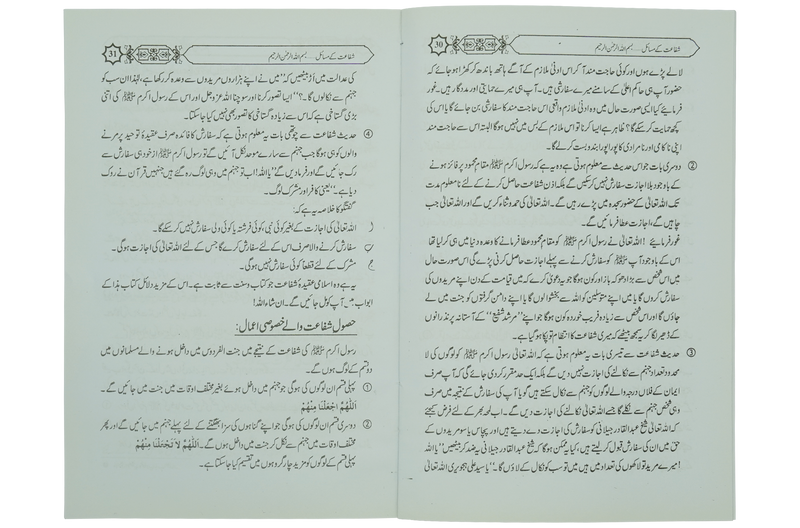 شفاعت کے مسائل ..... بسم اللہ الرحمٰن الرحیم
30
لالے پڑے ہوں اور کوئی حاجت مند آ کر اس ادنیٰ ملازم کے آگے ہاتھ باندھ کر کھڑا ہو جائے کہ
حضور آپ ہی حاکم اعلیٰ کے سامنے میرے سفارشی ہیں۔ آپ ہی میرے حمایتی اور مددگار ہیں۔ غور
فرمائیے کیا ایسی صورت حال میں وہ ادنیٰ ملازم واقعی اس حاجت مند کا سفارشی بن جائے گا یا اس کی
کچھ حمایت کر سکے گا؟ ظاہر ہے ایسا کرنا تو اس ملازم کے بس میں نہیں ہوگا البتہ اس سے حاجت مند
اپنی ناکامی اور نامرادی کا پورا پورا بندوبست کرلے گا۔
② دوسری بات جو اس حدیث سے معلوم ہوتی ہے وہ یہ ہے کہ رسول اکرم ﷺ مقام محمود پر فائز ہونے
کے باوجود بلا اجازت سفارش نہیں کرسکیں گے بلکہ اذن شفاعت حاصل کرنے کے لئے نامعلوم مدت
تک اللہ تعالیٰ کے حضور سجدہ میں پڑے رہیں گے۔ اللہ تعالیٰ کی حمد و ثناء کریں گے اور اللہ تعالیٰ جب
چاہیں گے، اجازت عطا فرمائیں گے۔
غور فرمائیے! اللہ تعالیٰ نے رسول اکرم ﷺ کو مقام محمود عطا فرمانے کا وعدہ دنیا میں ہی کر لیا تھا
اس کے باوجود آپ ﷺ کو سفارش کرنے سے پہلے اجازت حاصل کرنی پڑے گی اس صورت حال
میں اس شخص سے بڑا دھوکہ باز اور کون ہوگا جو یہ دعویٰ کرے کہ میں قیامت کے دن اپنے مریدوں کی
سفارش کروں گا یا میں اپنے متوسلین کو اللہ سے بخشوا لوں گا یا اپنے دامن گرفتوں کو جنت میں لے
جاؤں گا اور اس شخص سے زیادہ فریب خوردہ کون ہوگا جو اپنے "مرشد شفیع" کے آستانہ پر نذرانوں
کے ڈھیر لگا کر یہ سمجھ بیٹھے کہ میری شفاعت کا انتظام تو پکا ہوگیا ہے۔
③ حدیث شفاعت سے تیسری بات یہ معلوم ہوتی ہے کہ اللہ تعالیٰ رسول اکرم ﷺ کو لوگوں کی لا
محدود تعداد جہنم سے نکالنے کی اجازت نہیں دیں گے بلکہ ایک حد مقرر کر دی جائے گی کہ آپ صرف
ایمان کے فلاں درجہ والے لوگوں کو جہنم سے نکال سکتے ہیں گویا آپ کی سفارش کے نتیجہ میں صرف
وہی شخص جہنم سے نکلے گا جسے اللہ تعالیٰ نکالنے کی اجازت دیں گے۔ اب لمحہ بھر کے لئے فرض کیجئے
کہ اللہ تعالیٰ شیخ عبدالقادر جیلانی کو سفارش کی اجازت دے دیتے ہیں اور پچاس یا سو مریدوں کے
حق میں ان کی سفارش قبول کر لیتے ہیں، کیا یہ ممکن ہوگا کہ شیخ عبدالقادر جیلانی یہ ضد کر بیٹھیں "یا اللہ
! میرے مرید تو لاکھوں کی تعداد میں ہیں میں تو سب کو نکال کے لاؤں گا۔" یا سید علی ہجویری اللہ تعالیٰ
شفاعت کے مسائل ..... بسم اللہ الرحمٰن الرحیم
31
کی عدالت میں اڑ بیٹھیں کہ "میں نے اپنے ہزاروں مریدوں سے وعدہ کر رکھا ہے، لہٰذا ان سب کو
جہنم سے نکالوں گا۔؟" ایسا تصور کرنا اور سوچنا اللہ عزوجل اور اس کے رسول اکرم ﷺ کی اتنی
بڑی گستاخی ہے کہ اس سے زیادہ گستاخی کا تصور بھی نہیں کیا جاسکتا۔
④ حدیث شفاعت سے چوتھی بات یہ معلوم ہوتی ہے کہ سفارش کا فائدہ صرف عقیدہ توحید پر مرنے
والوں کو ہی ہوگا جب جہنم سے سارے موحد نکل آئیں گے تو رسول اکرم ﷺ از خود ہی سفارش سے
رک جائیں گے اور فرمادیں گے "یا اللہ! اب تو جہنم میں وہی لوگ رہ گئے ہیں جنہیں قرآن نے روک
دیا ہے۔" یعنی کافر اور مشرک لوگ۔
گفتگو کا خلاصہ یہ ہے کہ:
ا اللہ تعالیٰ کی اجازت کے بغیر کوئی نبی، کوئی فرشتہ یا کوئی ولی سفارش نہیں کر سکے گا۔
ب سفارش کرنے والا صرف اس کے لئے سفارش کرے گا جس کے لئے اللہ تعالیٰ کی اجازت ہوگی۔
ج مشرک کے لئے قطعاً کوئی سفارش نہیں ہوگی۔
یہ ہے وہ اسلامی عقیدہ شفاعت جو کتاب و سنت سے ثابت ہے۔ اس کے مزید دلائل کتاب ہذا کے
ابواب میں آپ کو مل جائیں گے۔ ان شاء اللہ!
حصول شفاعت والے خصوصی اعمال:
رسول اکرم ﷺ کی شفاعت کے نتیجے میں جنت الفردوس میں داخل ہونے والے مسلمانوں میں
دو قسم کے لوگ ہوں گے۔
① پہلی قسم ان لوگوں کی ہوگی جو جہنم میں داخل ہوئے بغیر مختلف اوقات میں جنت میں جائیں گے۔
اَللّٰهُمَّ اجْعَلْنَا مِنْهُمْ
② دوسری قسم ان لوگوں کی ہوگی جو اپنے گناہوں کی سزا بھگتنے کے لئے پہلے جہنم میں جائیں گے اور پھر
مختلف اوقات میں جہنم سے نکل کر جنت میں داخل ہوں گے۔ اَللّٰهُمَّ لَا تَجْعَلْنَا مِنْهُمْ
پہلی قسم کے لوگوں کو مزید چار گروہوں میں تقسیم کیا جاسکتا ہے۔